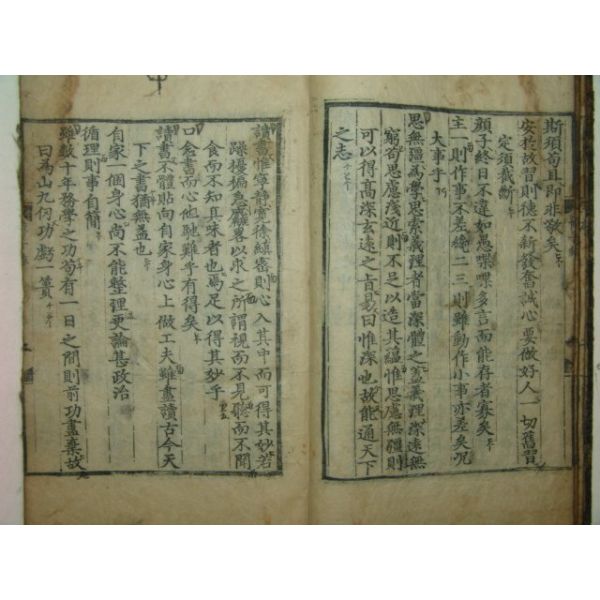 斯須苟且即非敬矣
安於故習則德不新須奮誠心要做好人一切舊習
定須截斷
顔子終日不違如愚喋喋多言而能存者寡矣
主一則作事不差纔二三則雖動作小事亦差矣况
大事乎
思無疆爲學思索義理者當深體之盖義理深遠無
窮苟思慮淺近則不足以造其蘊惟思慮無疆則
可以得髙深玄遠之旨易曰惟深也故能通天下
之志
讀書惟寧静寛徐縝密則心入其中而可得其妙若
躁擾褊急麤畧以求之所謂視而不見聽而不聞
食而不知其味者也焉足以得其妙乎
口念書而心他馳難乎有得矣
讀書不體貼向自家身心上做工夫雖盡讀古今天
下之書猶無益也
自家一個身心尚不能整理更論甚政治
循理則事自簡
雖數十年務學之功苟有一日之間則前功盡棄故
曰爲山九仞功虧一簣